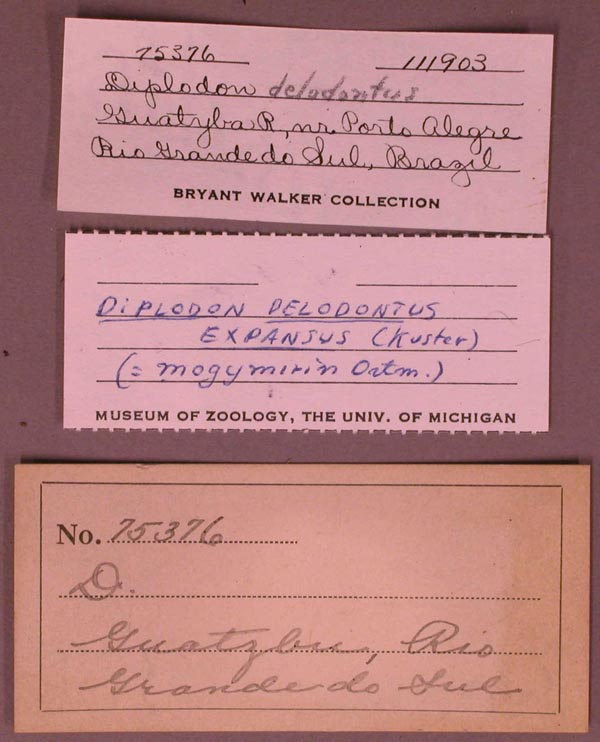 75376 111903
Diplodon delodontus
Guatyba R, nr. Porto Alegre
Rio Grande do Sul, Brazil
BRYANT WALKER COLLECTION
DIPLODON DELODONTUS
EXPANSUS (Kuster)
(= mogymirin Ortm.)
MUSEUM OF ZOOLOGY, THE UNIV. OF MICHIGAN
No. 75376
D.
Guatyba, Rio
Grande do Sul